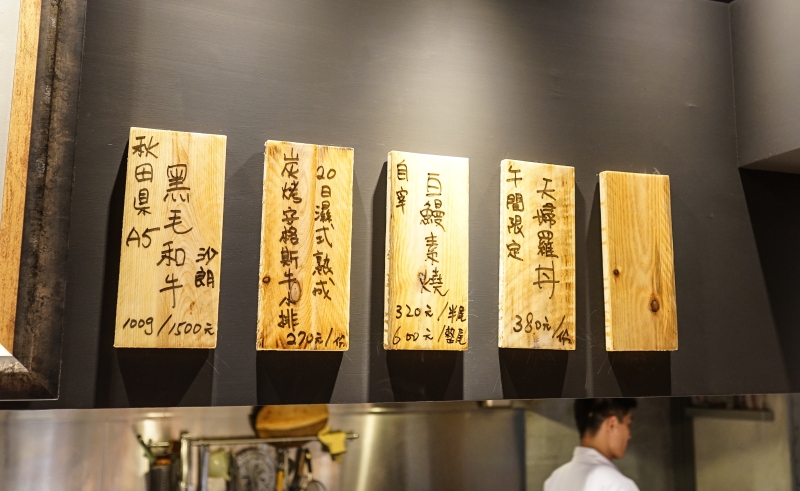 秋田県A5
黑毛和牛
沙朗
100g/1500元
20日濕式熟成
炭烤安格斯牛小排
270元/份
自宰
白鰻素燒
320元/半尾
600元/整尾
午間限定
天婦羅丼
380元/份